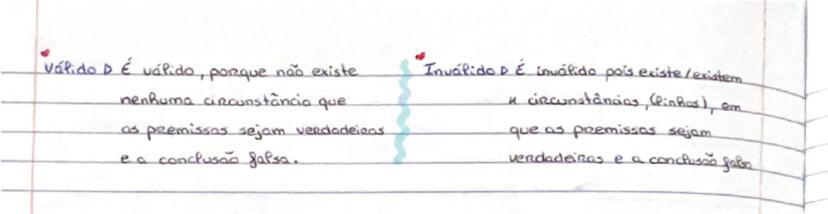 Válido ▷ É válido, porque não existe
nenhuma circunstância que
as premissas sejam verdadeiras
e a conclusão falsa.
Inválido ▷ É inválido pois existe/existem
x circunstâncias, (linhas), em
que as premissas sejam
verdadeiras e a conclusão falsa